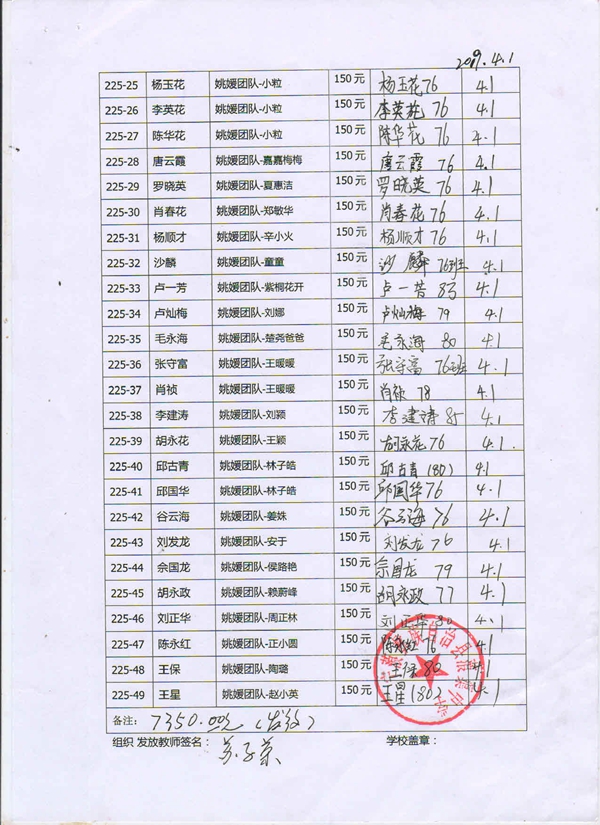 2019.4.1
225-25 杨玉花 姚媛团队-小粒 150元 杨玉花 76 4.1
225-26 李英花 姚媛团队-小粒 150元 李英花 76 4.1
225-27 陈华花 姚媛团队-小粒 150元 陈华花 76 4.1
225-28 唐云霞 姚媛团队-嘉嘉梅梅 150元 唐云霞 76 4.1
225-29 罗晓英 姚媛团队-夏惠洁 150元 罗晓英 76 4.1
225-30 肖春花 姚媛团队-郑敏华 150元 肖春花 76 4.1
225-31 杨顺才 姚媛团队-辛小火 150元 杨顺才 76 4.1
225-32 沙麟 姚媛团队-童童 150元 沙麟 76班 4.1
225-33 卢一芳 姚媛团队-紫桐花开 150元 卢一芳 83 4.1
225-34 卢灿梅 姚媛团队-刘娜 150元 卢灿梅 79 4.1
225-35 毛永海 姚媛团队-楚尧爸爸 150元 毛永海 80 4.1
225-36 张守富 姚媛团队-王暖暖 150元 张守富 76班 4.1
225-37 肖祯 姚媛团队-王暖暖 150元 肖祯 78 4.1
225-38 李建涛 姚媛团队-刘颖 150元 李建涛 85 4.1
225-39 胡永花 姚媛团队-王颖 150元 胡永花 76 4.1
225-40 邱古青 姚媛团队-林子皓 150元 邱古青 (80) 4.1
225-41 邱国华 姚媛团队-林子皓 150元 邱国华 76 4.1
225-42 谷云海 姚媛团队-姜姝 150元 谷云海 76 4.1
225-43 刘发龙 姚媛团队-安于 150元 刘发龙 76 4.1
225-44 佘国龙 姚媛团队-侯路艳 150元 佘国龙 79 4.1
225-45 胡永政 姚媛团队-赖蔚峰 150元 胡永政 77 4.1
225-46 刘正华 姚媛团队-周正林 150元 刘正华 80 4.1
225-47 陈永红 姚媛团队-正小圆 150元 陈永红 76 4.1
225-48 王保 姚媛团队-陶璐 150元 王保 80 4.1
225-49 王星 姚媛团队-赵小英 150元 王星 (80) 4.1
备注: 7350.00元 (发放)
组织 发放教师签名: 学校盖章: